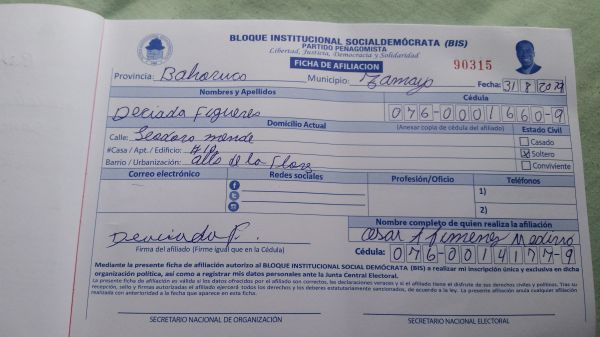 BLOQUE INSTITUCIONAL SOCIALDEMÓCRATA (BIS)
PARTIDO PENAGOMISTA
Libertad, Justicia, Democracia y Solidaridad
FICHA DE AFILIACION
90315
Provincia: Bahoruco Municipio: Tamayo Fecha: 31 8 2019
Nombres y Apellidos Cédula
Deciada Figueres 076-0001660-9
Domicilio Actual (Anexar copia de cédula del afiliado) Estado Civil
Calle: Teodoro mende Casado
#Casa / Apt. / Edificio: #10 Soltero
Barrio / Urbanización: alto de la Flore Conviviente
Correo electrónico Redes sociales Profesión/Oficio Teléfonos
1)
2)
Nombre completo de quien realiza la afiliación
Cesar A Jimenez Medina
Firma del afiliado (Firme igual que en la Cédula) Cédula: 076-0014177-9
Mediante la presente ficha de afiliación autorizo al BLOQUE INSTITUCIONAL SOCIAL DEMÓCRATA (BIS) a realizar mi inscripción única y exclusiva en dicha
organización política, así como a registrar mis datos personales ante la Junta Central Electoral.
La presente ficha de afiliación es válida si los datos ofrecidos por el afiliado son correctos, las declaraciones veraces y si el afiliado tiene el disfrute de sus derechos civiles y políticos. Tras su
recepción, sello y firmas autorizadas el afiliado ejercerá todos los derechos y los deberes estatutariamente sancionados, de acuerdo a la ley. La presente afiliación anula cualquier afiliación
realizada con anterioridad a la fecha que aparece en esta ficha.
SECRETARIO NACIONAL DE ORGANIZACIÓN SECRETARIO NACIONAL ELECTORAL